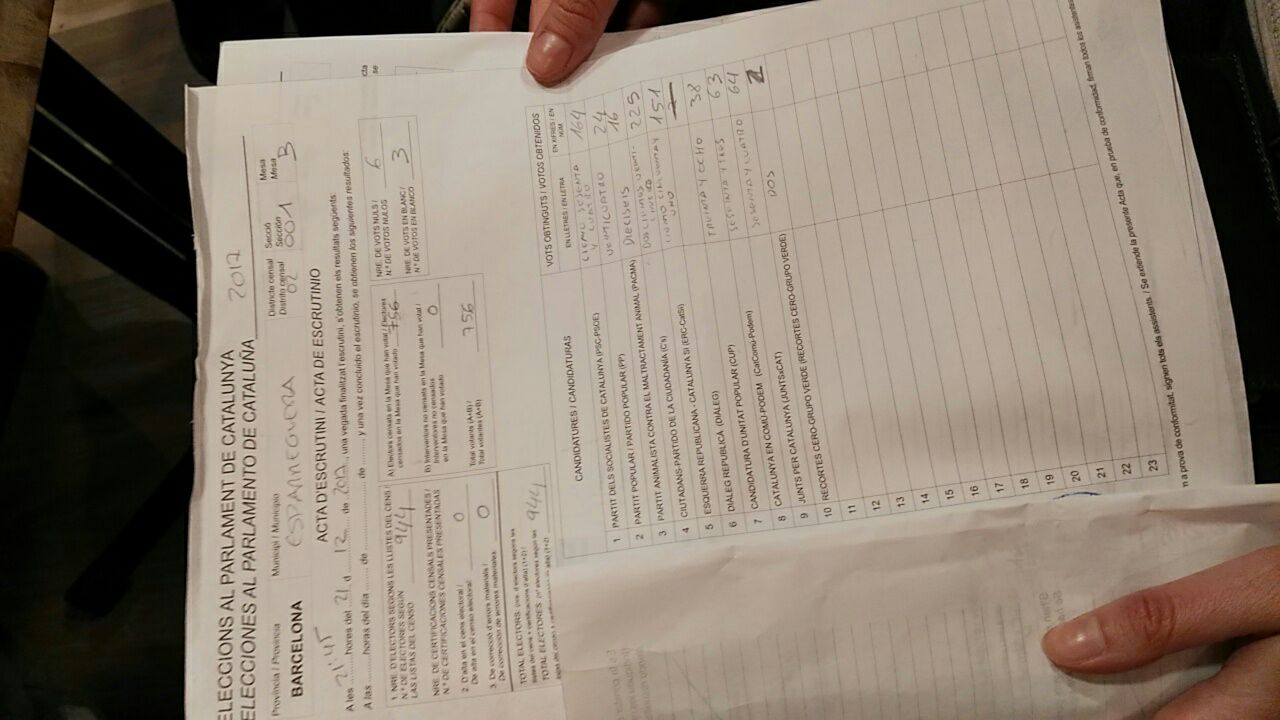 ELECCIONS AL PARLAMENT DE CATALUNYA
ELECCIONES AL PARLAMENTO DE CATALUÑA 2017
Província / Provincia
BARCELONA
Municipi / Municipio
ESPARREGUERA
Districte censal
Distrito censal
02
Secció
Sección
001
Mesa
Mesa
B
ACTA D'ESCRUTINI / ACTA DE ESCRUTINIO
A les 21'45 hores del 21 d 12 de 2017, una vegada finalitzat l'escrutini, s'obtenen els resultats següents:
A las ........ horas del día ........ de ........ de ........ y una vez concluido el escrutinio, se obtienen los siguientes resultados:
1. NRE. D'ELECTORS SEGONS LES LLISTES DEL CENS /
N.º DE ELECTORES SEGÚN
LAS LISTAS DEL CENSO
944
NRE. DE CERTIFICACIONS CENSALS PRESENTADES /
N.º DE CERTIFICACIONES CENSALES PRESENTADAS
2. D'alta en el cens electoral /
De alta en el censo electoral:
0
3. De correcció d'errors materials /
De corrección de errores materiales:
0
TOTAL ELECTORS: (nre. d'electors segons les
TOTAL ELECTORES: (n.º electores según las
944
A) Electors censats en la Mesa que han votat / Electores
censados en la Mesa que han votado
756
B) Interventors no censats en la Mesa que han votat /
Interventores no censados
en la Mesa que han votado
0
Total votants (A+B) /
Total votantes (A+B)
756
NRE. DE VOTS NULS /
N.º DE VOTOS NULOS
6
NRE. DE VOTS EN BLANC /
N.º DE VOTOS EN BLANCO
3
CANDIDATURES / CANDIDATURAS
VOTS OBTINGUTS / VOTOS OBTENIDOS
EN LLETRES / EN LETRA
EN XIFRES / EN NÚM
1 PARTIT DELS SOCIALISTES DE CATALUNYA (PSC-PSOE) CIENTO SESENTA Y CUATRO 164
2 PARTIT POPULAR / PARTIDO POPULAR (PP) VEINTICUATRO 24
3 PARTIT ANIMALISTA CONTRA EL MALTRACTAMENT ANIMAL (PACMA) DIECISEIS 16
4 CIUTADANS-PARTIDO DE LA CIUDADANÍA (C's) DOSCIENTOS VEINTICINCO 225
5 ESQUERRA REPUBLICANA - CATALUNYA SÍ (ERC-CatSí) CIENTO CINCUENTA Y UNO 151
6 DIÀLEG REPÚBLICA (DIÀLEG)
7 CANDIDATURA D'UNITAT POPULAR (CUP) TREINTA Y OCHO 38
8 CATALUNYA EN COMÚ-PODEM (CatComú-Podem) SESENTA Y TRES 63
9 JUNTS PER CATALUNYA (JUNTSxCAT) SESENTA Y CUATRO 64
10 RECORTES CERO-GRUPO VERDE (RECORTES CERO-GRUPO VERDE) DOS 2
11
12
13
14
15
16
17
18
19
20
21
22
23
a prova de conformitat, signen tots els assistents. / Se extiende la presente Acta que, en prueba de conformidad, firman todos los asistentes